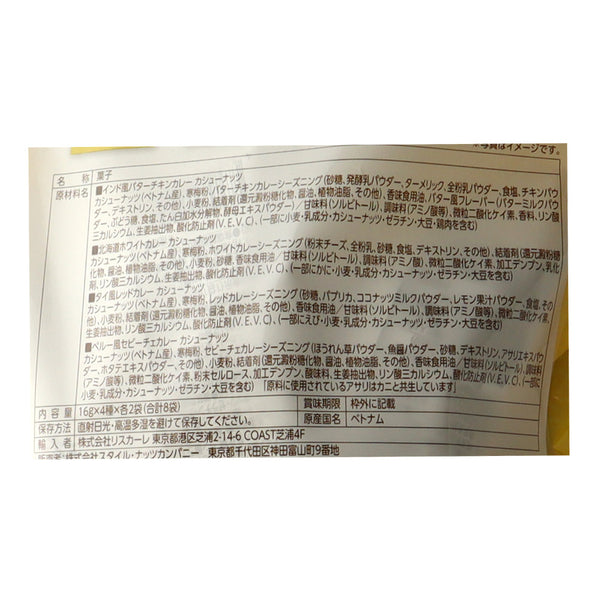 ※写真はイメージです。
名 称 菓子
原材料名 ■インド風バターチキンカレー カシューナッツ
カシューナッツ(ベトナム産)、寒梅粉、バターチキンカレーシーズニング(砂糖、発酵乳パウダー、ターメリック、全粉乳パウダー、食塩、チキンパウ
ダー、デキストリン、その他)、小麦粉、結着剤(還元澱粉糖化物、醤油、植物油脂、その他)、香味食用油、バター風フレーバー(バターミルクパウ
ダー、ぶどう糖、食塩、たん白加水分解物、酵母エキスパウダー)/甘味料(ソルビトール)、調味料(アミノ酸等)、微粒二酸化ケイ素、香料、リン酸
三カルシウム、生姜抽出物、酸化防止剤(V.E、V.C)、(一部に小麦・乳成分・カシューナッツ・ゼラチン・大豆・鶏肉を含む)
■北海道ホワイトカレー カシューナッツ
カシューナッツ(ベトナム産)、寒梅粉、ホワイトカレーシーズニング(粉末チーズ、全粉乳、砂糖、食塩、デキストリン、その他)、結着剤(還元澱粉糖
化物、醤油、植物油脂、その他)、小麦粉、砂糖、香味食用油/甘味料(ソルビトール)、調味料(アミノ酸)、微粒二酸化ケイ素、加工デンプン、乳化
剤、リン酸三カルシウム、生姜抽出物、酸化防止剤(V.E、V.C)、(一部にかに・小麦・乳成分・カシューナッツ・ゼラチン・大豆を含む)
■タイ風レッドカレー カシューナッツ
カシューナッツ(ベトナム産)、寒梅粉、レッドカレーシーズニング(砂糖、パプリカ、ココナッツミルクパウダー、レモン果汁パウダー、食塩、その
他)、小麦粉、結着剤(還元澱粉糖化物、醤油、植物油脂、その他)、香味食用油/甘味料(ソルビトール)、調味料(アミノ酸等)、微粒二酸化ケイ素、
生姜抽出物、リン酸三カルシウム、酸化防止剤(V.E、V.C)、(一部にえび・小麦・乳成分・カシューナッツ・ゼラチン・大豆を含む)
■ペルー風セビーチェカレー カシューナッツ
カシューナッツ(ベトナム産)、寒梅粉、セビーチェカレーシーズニング(ほうれん草パウダー、魚醤パウダー、砂糖、デキストリン、アサリエキスパウ
ダー、ホタテエキスパウダー、その他)、小麦粉、結着剤(還元澱粉糖化物、醤油、植物油脂、その他)、香味食用油/甘味料(ソルビトール)、調味料
(アミノ酸等)、微粒二酸化ケイ素、粉末セルロース、加工デンプン、酸味料、生姜抽出物、リン酸三カルシウム、酸化防止剤(V.E、V.C)、(一部に小
麦・乳成分・カシューナッツ・ゼラチン・大豆を含む) 「原料に使用されているアサリはカニと共生しています」
内 容 量 16g×4種×各2袋(合計8袋) 賞味期限 枠外に記載
保存方法 直射日光・高温多湿を避けて保存してください。 原産国名 ベトナム
輸 入 者 株式会社リスカーレ 東京都港区芝浦2-14-6 COAST芝浦4F
販売者 株式会社スタイル・ナッツカンパニー 東京都千代田区神田富山町9番地